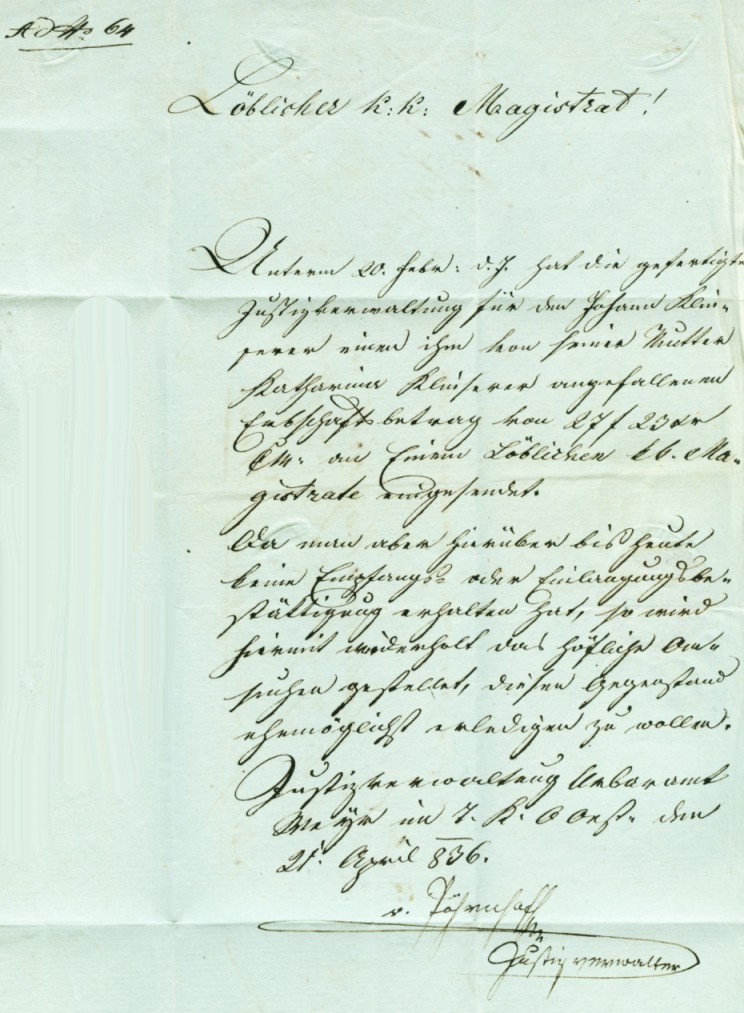 Ad No 64
Löblicher k: k: Magistrat!
Unterm 20. Febr: d. J. hat die gefertigte
Justizverwaltung für den Johann Klin-
serer einen ihm von seiner Mutter
Katharina Klinserer angefallenen
Erbschaftsbetrag von 27 f 23 xr
CM. an Einem Löblichen kk. Ma-
gistrate eingesendet.
Da man aber hierüber bis heute
keine Empfangs- oder Einlangungsbe-
stättigung erhalten hat, so wird
hiermit wiederholt das höfliche An-
suchen gestellet, diesen Gegenstand
ehemöglichst erledigen zu wollen.
Justizverwaltung Urbaramt
Weyr im T. K. O Oest. den
21. April 836.
v.
Justizverwalter